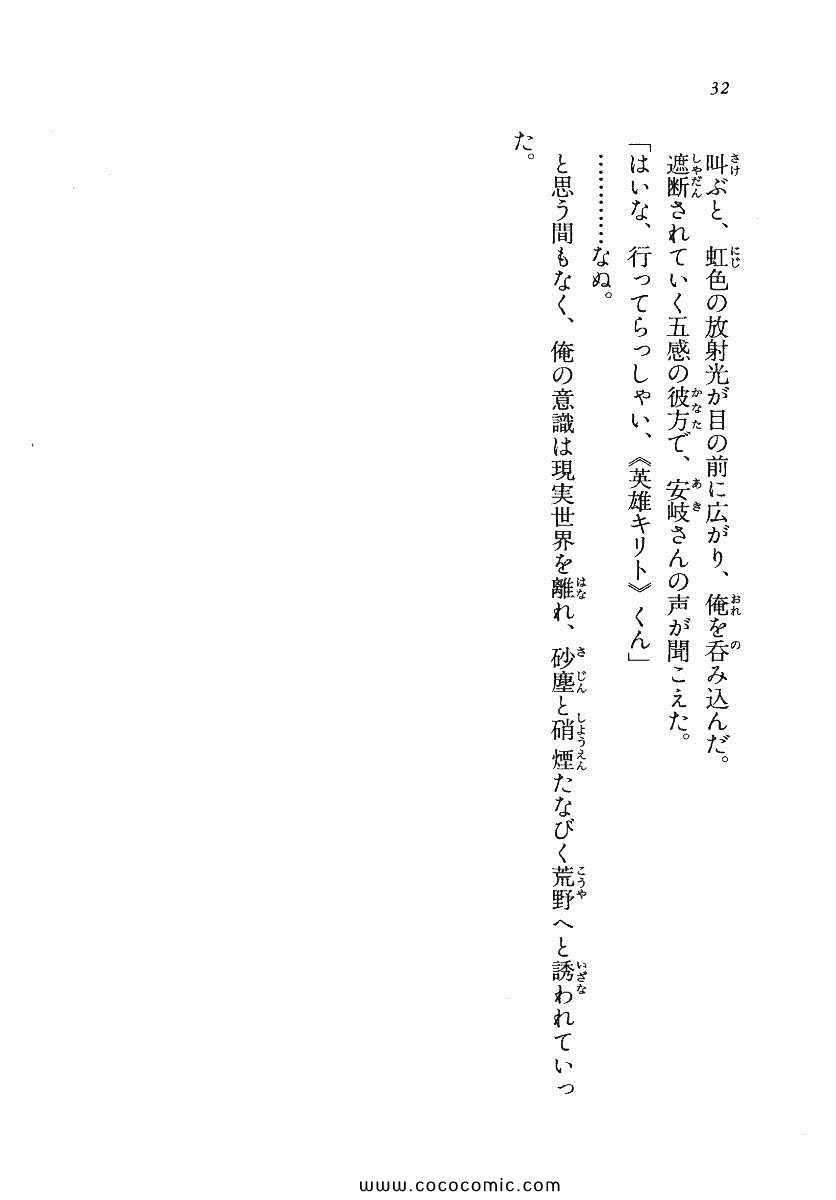 32
叫ぶと、虹色の放射光が目の前に広がり、俺を呑み込んだ。
遮断されていく五感の彼方で、安岐さんの声が聞こえた。
「はいな、行ってらっしゃい、《英雄キリト》くん」
…………なぬ。
と思う間もなく、俺の意識は現実世界を離れ、砂塵と硝煙たなびく荒野へと誘われていっ
た。
www.cococomic.com